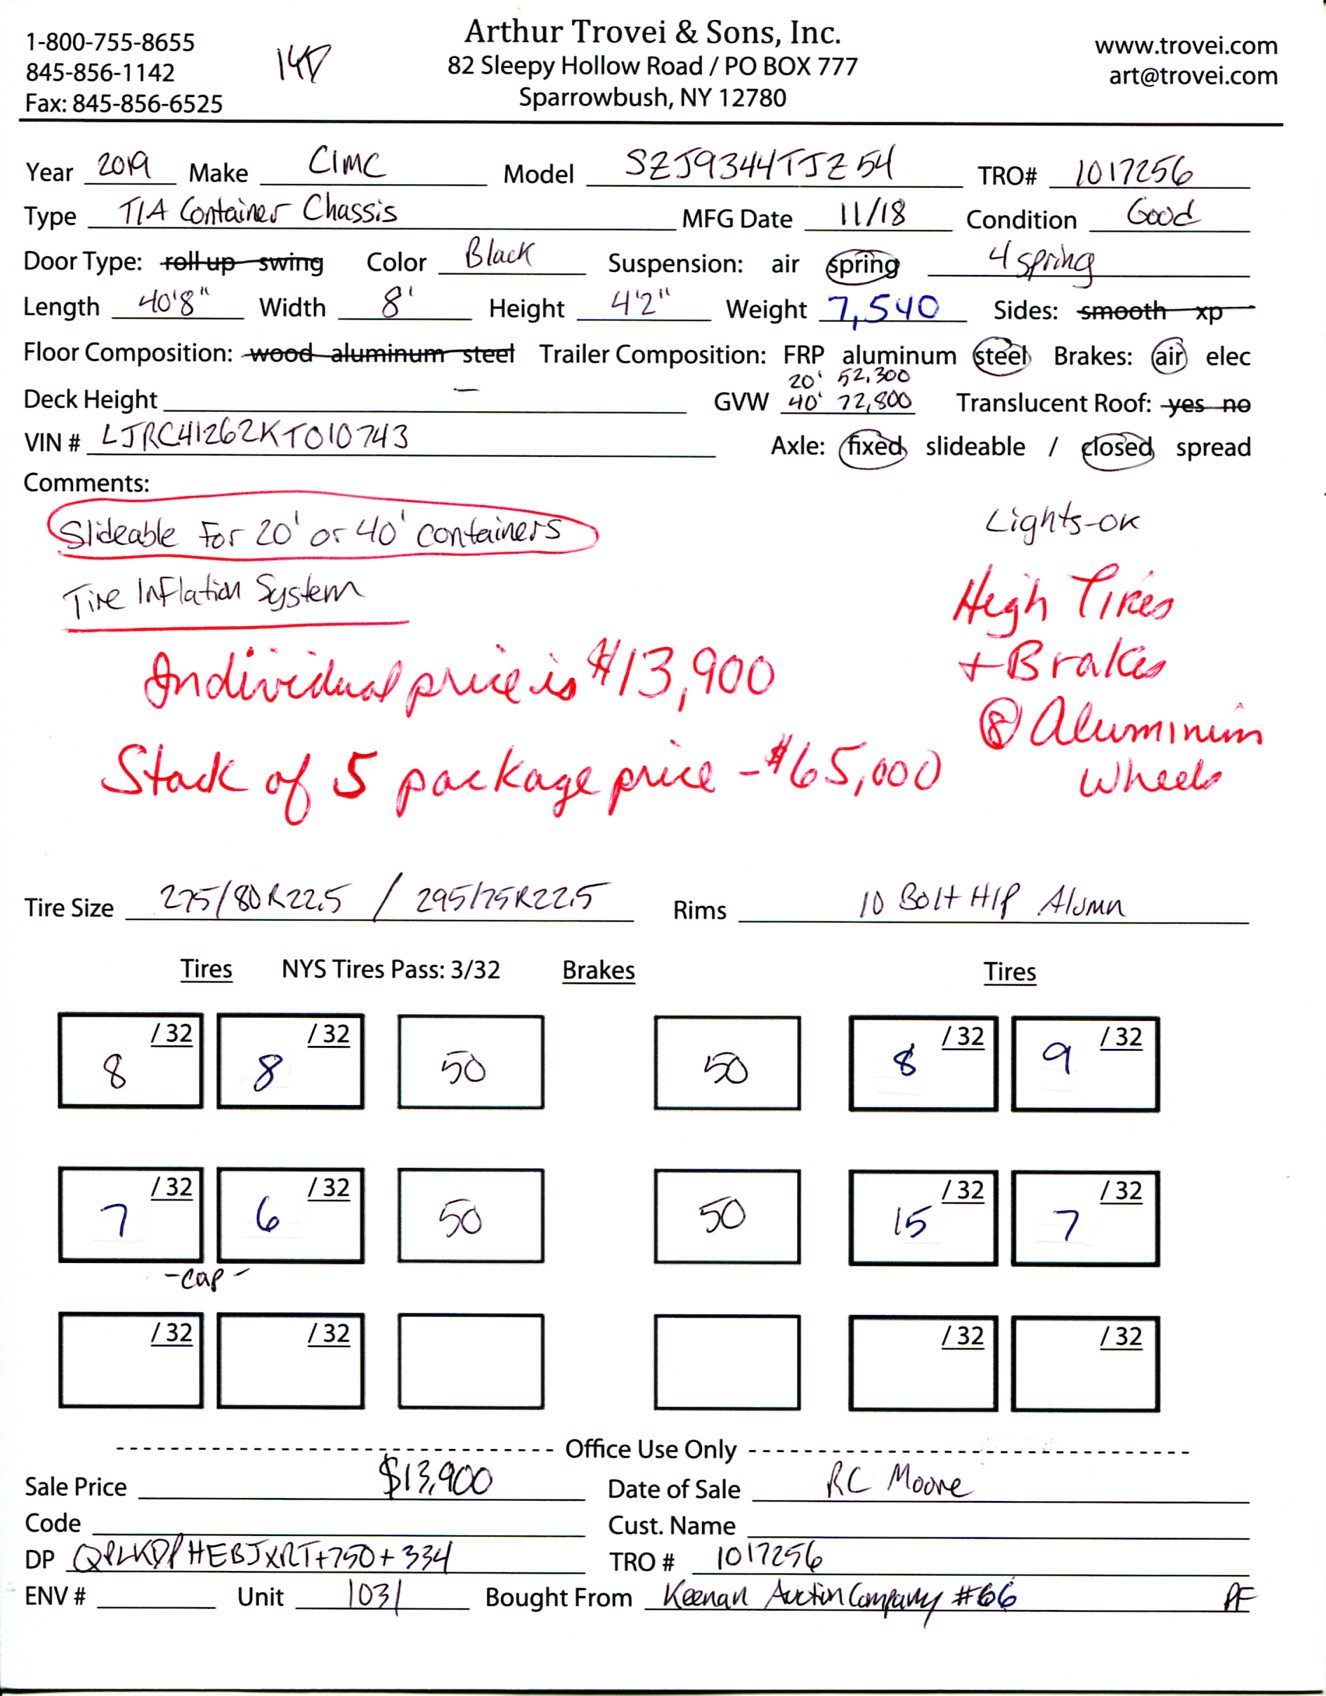 Arthur Trovei & Sons, Inc.
1-800-755-8655 82 Sleepy Hollow Road / PO BOX 777 www.trovei.com
845-856-1142 Sparrowbush, NY 12780 art@trovei.com
Fax: 845-856-6525
Year 2019 Make CIMC Model SZJ9344TJZ54 TRO# 1017256
Type T/A Container Chassis MFG Date 11/18 Condition Good
Door Type: roll up swing Color Black Suspension: air spring 4 spring
Length 40'8" Width 8' Height 4'2" Weight 7,540 Sides: smooth xp
Floor Composition: wood aluminum steel Trailer Composition: FRP aluminum steel Brakes: air elec
20' 52,300
Deck Height — GVW 40' 72,800 Translucent Roof: yes no
VIN # LJRC41262KT010743 Axle: fixed slideable / closed spread
Comments:
Slideable For 20' or 40' containers
Lights-OK
Tire Inflation System
High Tires
+ Brakes
Individual price is $13,900
8 Aluminum
Wheels
Stack of 5 package price - $65,000
Tire Size 275/80R22.5 / 295/75R22.5 Rims 10 Bolt H/P Alumn
Tires NYS Tires Pass: 3/32 Brakes Tires
8 /32 8 /32 50 50 8 /32 9 /32
7 /32 6 /32 50 50 15 /32 7 /32
-cap-
/32 /32 /32 /32
Office Use Only
Sale Price $13,900 Date of Sale RC Moore
Code Cust. Name
DP QPLKDPHEBJXRT+750+334 TRO # 1017256
ENV # Unit 1031 Bought From Keenan Auction Company #66 PF